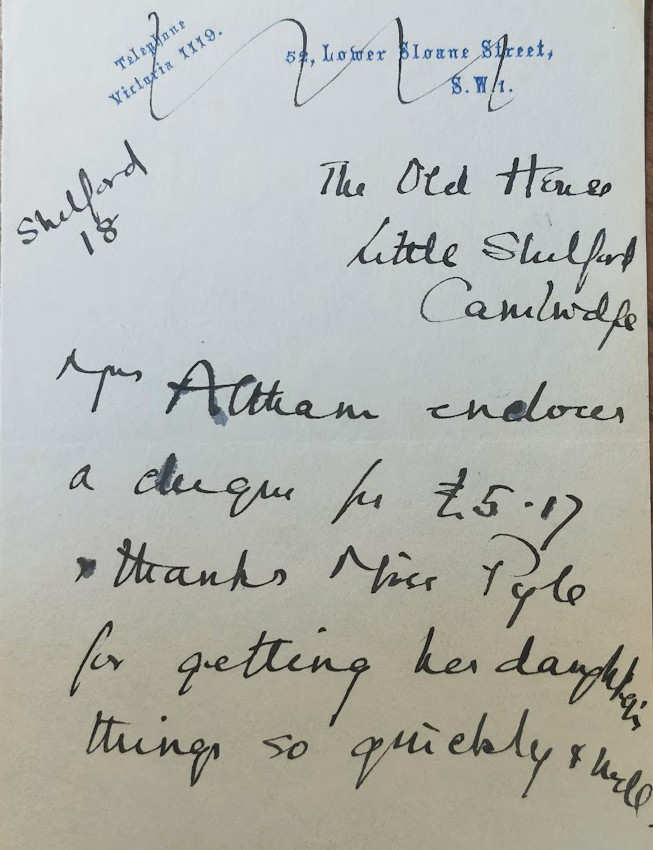 Telephone
Victoria 1119.
52, Lower Sloane Street,
S.W.1.
Shelford
18
The Old House
Little Shelford
Cambridge
Mrs Altham encloses
a cheque for £5.17
& thanks Miss Pyle
for getting her daughter's
things so quickly &